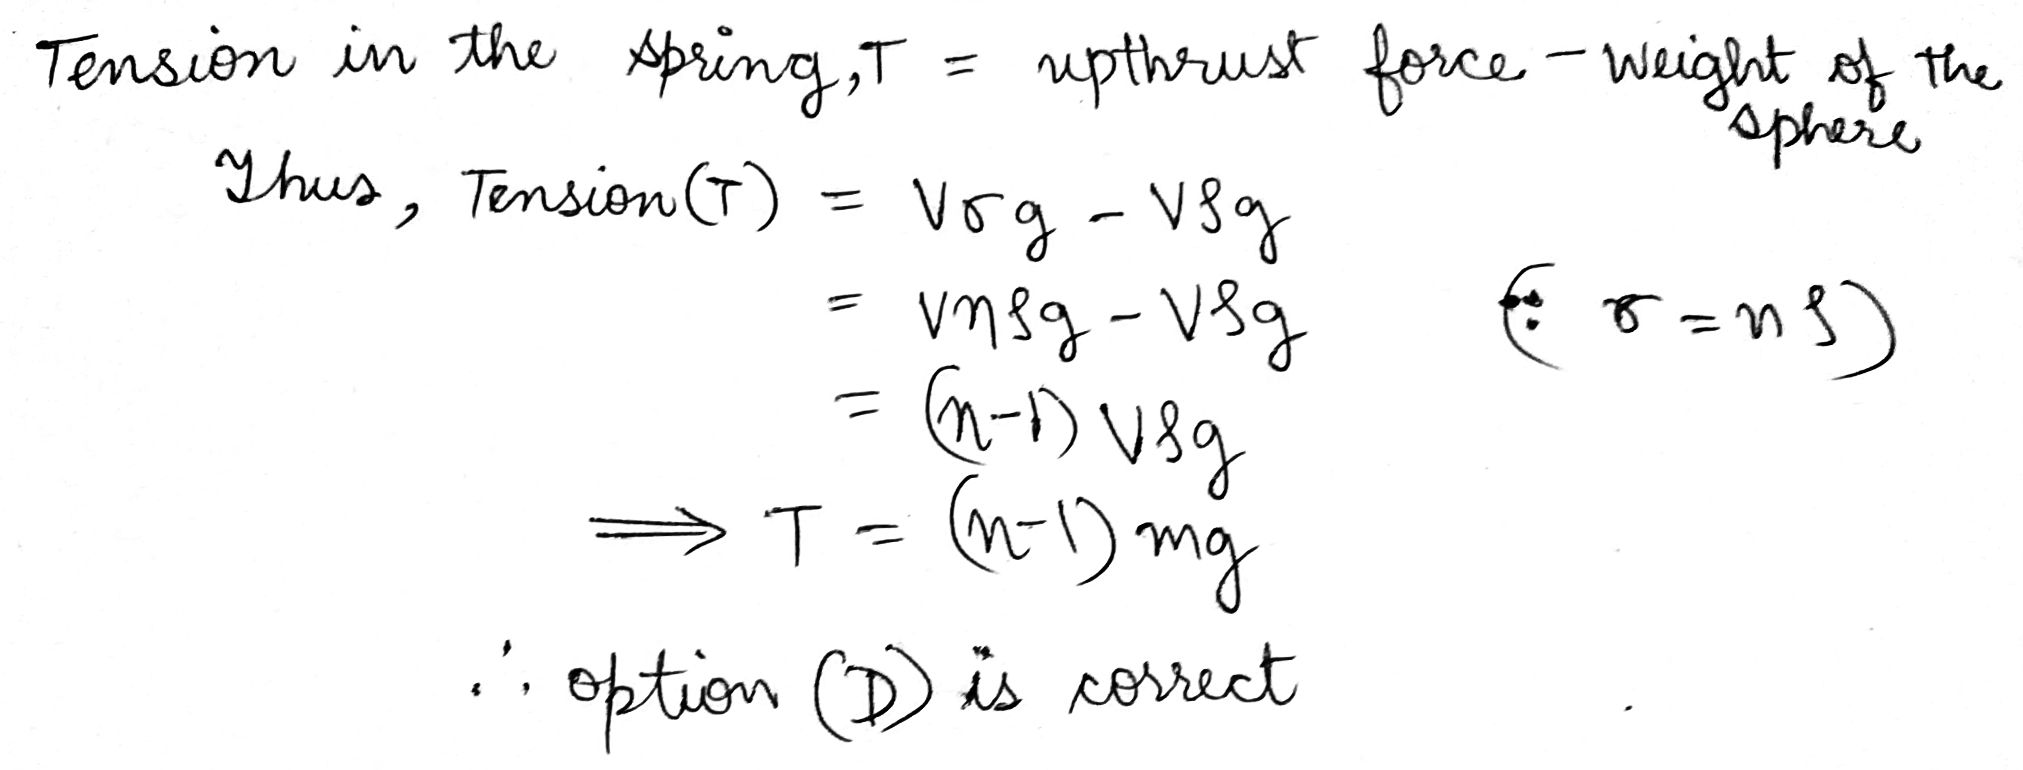 Tension in the spring, T = upthrust force - Weight of the sphere
Thus, Tension (T) = Vσg - Vρg
= Vnρg - Vρg (∵ σ = nρ)
= (n-1) Vρg
⟹ T = (n-1) mg
∴ option (D) is correct